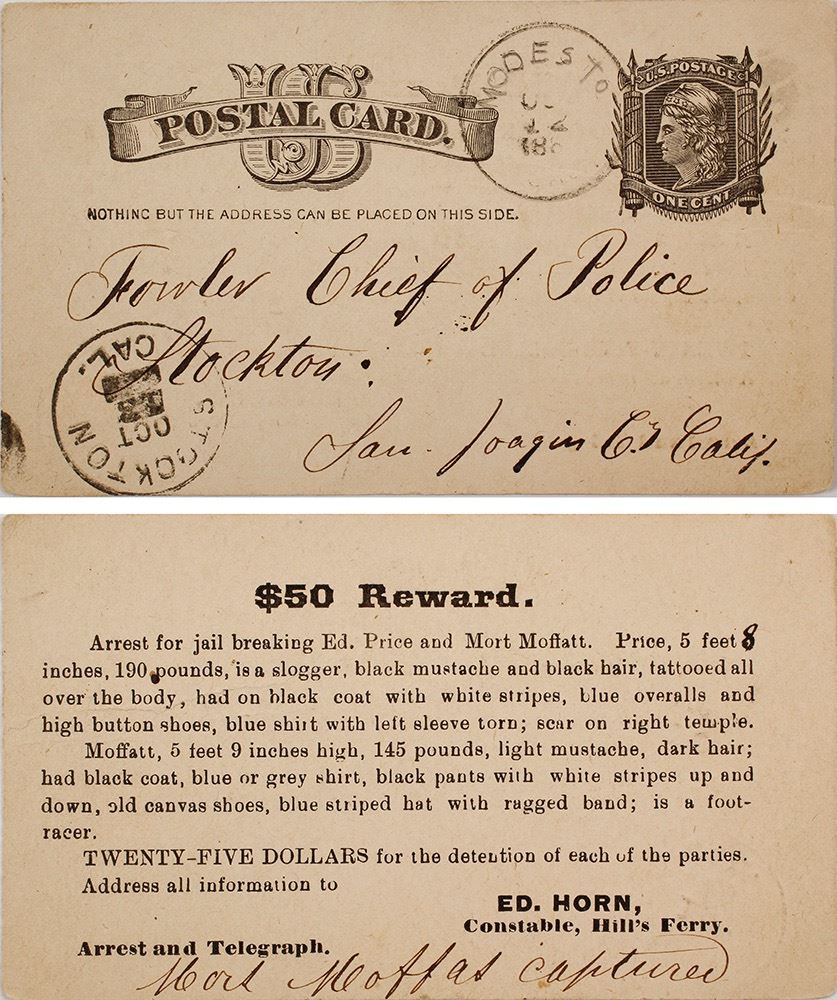 US
POSTAL CARD.
MODESTO
188
U.S. POSTAGE
ONE CENT
NOTHING BUT THE ADDRESS CAN BE PLACED ON THIS SIDE.
Fowler Chief of Police
Stockton.
San Joaqin Co Calif.
STOCKTON CAL.
OCT
13
$50 Reward.
Arrest for jail breaking Ed. Price and Mort Moffatt. Price, 5 feet 8
inches, 190 pounds, is a slogger, black mustache and black hair, tattooed all
over the body, had on black coat with white stripes, blue overalls and
high button shoes, blue shirt with left sleeve torn; scar on right temple.
Moffatt, 5 feet 9 inches high, 145 pounds, light mustache, dark hair;
had black coat, blue or grey shirt, black pants with white stripes up and
down, old canvas shoes, blue striped hat with ragged band; is a foot-
racer.
TWENTY-FIVE DOLLARS for the detention of each of the parties.
Address all information to
ED. HORN,
Constable, Hill's Ferry.
Arrest and Telegraph.
Mort Moffat captured